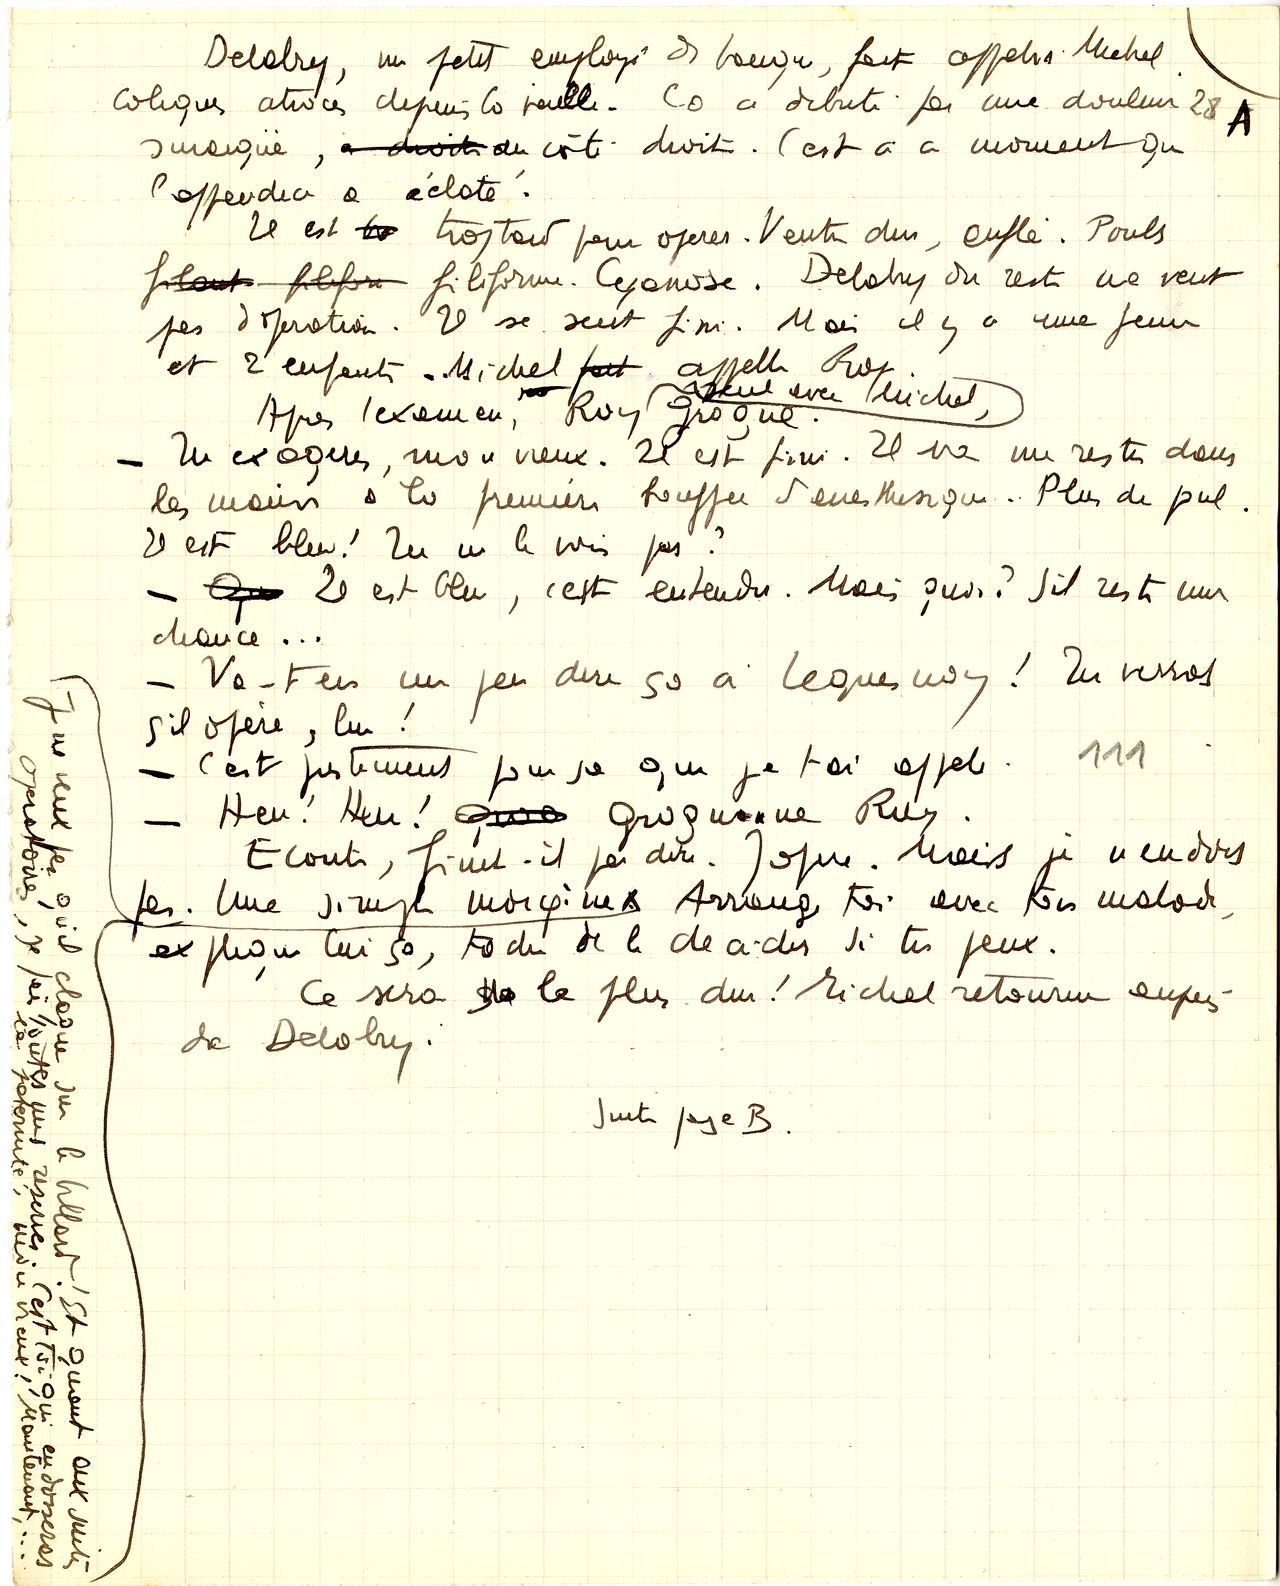 Delobry, un petit employé de banque, fait appeler Michel.
Coliques atroces depuis la veille. Ca a débuté par une douleur 28 A
, a droite au côté droit. C'est à ce moment que
l'appendice a éclaté.
Il est tro trop tard pour opérer. Ventre dur, enflé. Pouls
filant filifor filiforme. Cyanose. Delobry du reste ne veut
pas d'opération. Il se sent fini. Mais il y a une femme
et 2 enfants. Michel fait appelle Roy.
seul avec Michel,
Après l'examen, Roy grogne.
– Tu exagères, mon vieux. Il est fini. Il va me rester dans
les mains à la première bouffée d'anesthésique.. Plus de pouls.
Il est bleu! Tu ne le vois pas?
– Que Il est bleu, c'est entendu. Mais quoi? S'il reste une
chance...
– Va-t'en un peu dire ça à Lequesnoy! Tu verras
s'il opère, lui!
– C'est justement pour ça que je t'ai appelé. 111
– Heu! Heu! grogne Roy.
Ecoute, finit-il par dire. J'opère. Mais je n'endors
pas. Une simple Arrange toi avec ton malade,
explique lui ça, tache de le décider si tu peux.
Ce sera le plus dur! Michel retourne auprès
de Delobry.
Suite page B.
Je ne veux pas qu'il claque sur le billard! Et quant aux suites
opératoires, je fais toutes mes réserves. C'est toi qui en endosseras
la paternité, mon vieux! Maintenant,...